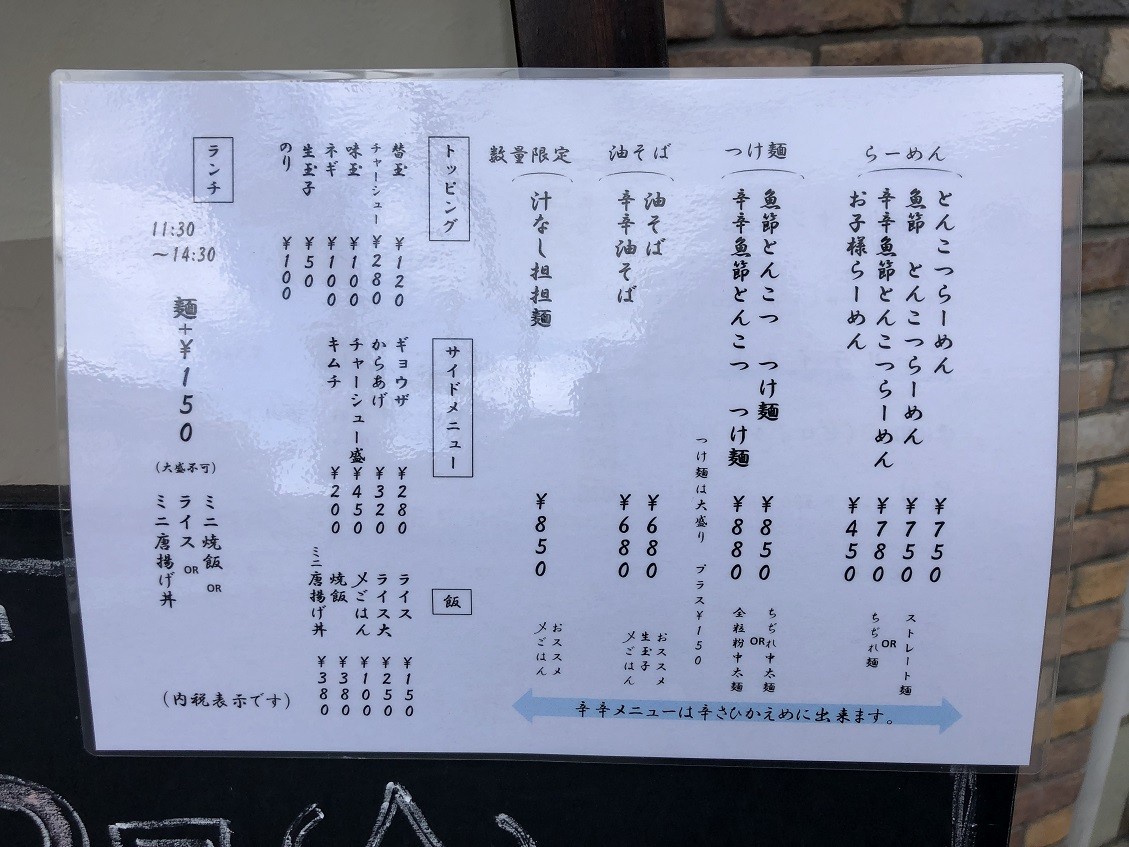 らーめん
とんこつらーめん ¥750
魚節 とんこつらーめん ¥750
辛辛魚節とんこつらーめん ¥780
お子様らーめん ¥450
ストレート麺
OR
ちぢれ麺
つけ麺
魚節とんこつ つけ麺 ¥850
辛辛魚節とんこつ つけ麺 ¥880
ちぢれ中太麺
OR
全粒粉中太麺
つけ麺は大盛り プラス¥150
油そば
油そば ¥680
辛辛油そば ¥680
おススメ
生玉子
〆ごはん
数量限定
汁なし担担麺 ¥850
おススメ
〆ごはん
辛辛メニューは辛さひかえめに出来ます。
トッピング
替玉 ¥120
チャーシュー ¥280
味玉 ¥100
ネギ ¥100
生玉子 ¥50
のり ¥100
サイドメニュー
ギョウザ ¥280
からあげ ¥320
チャーシュー盛 ¥450
キムチ ¥200
飯
ライス ¥150
ライス大 ¥250
〆ごはん ¥100
焼飯 ¥380
ミニ唐揚げ丼 ¥380
ランチ
11:30
～14:30
麺+¥150
(大盛不可)
ミニ焼飯 OR
ライス OR
ミニ唐揚げ丼
(内税表示です)